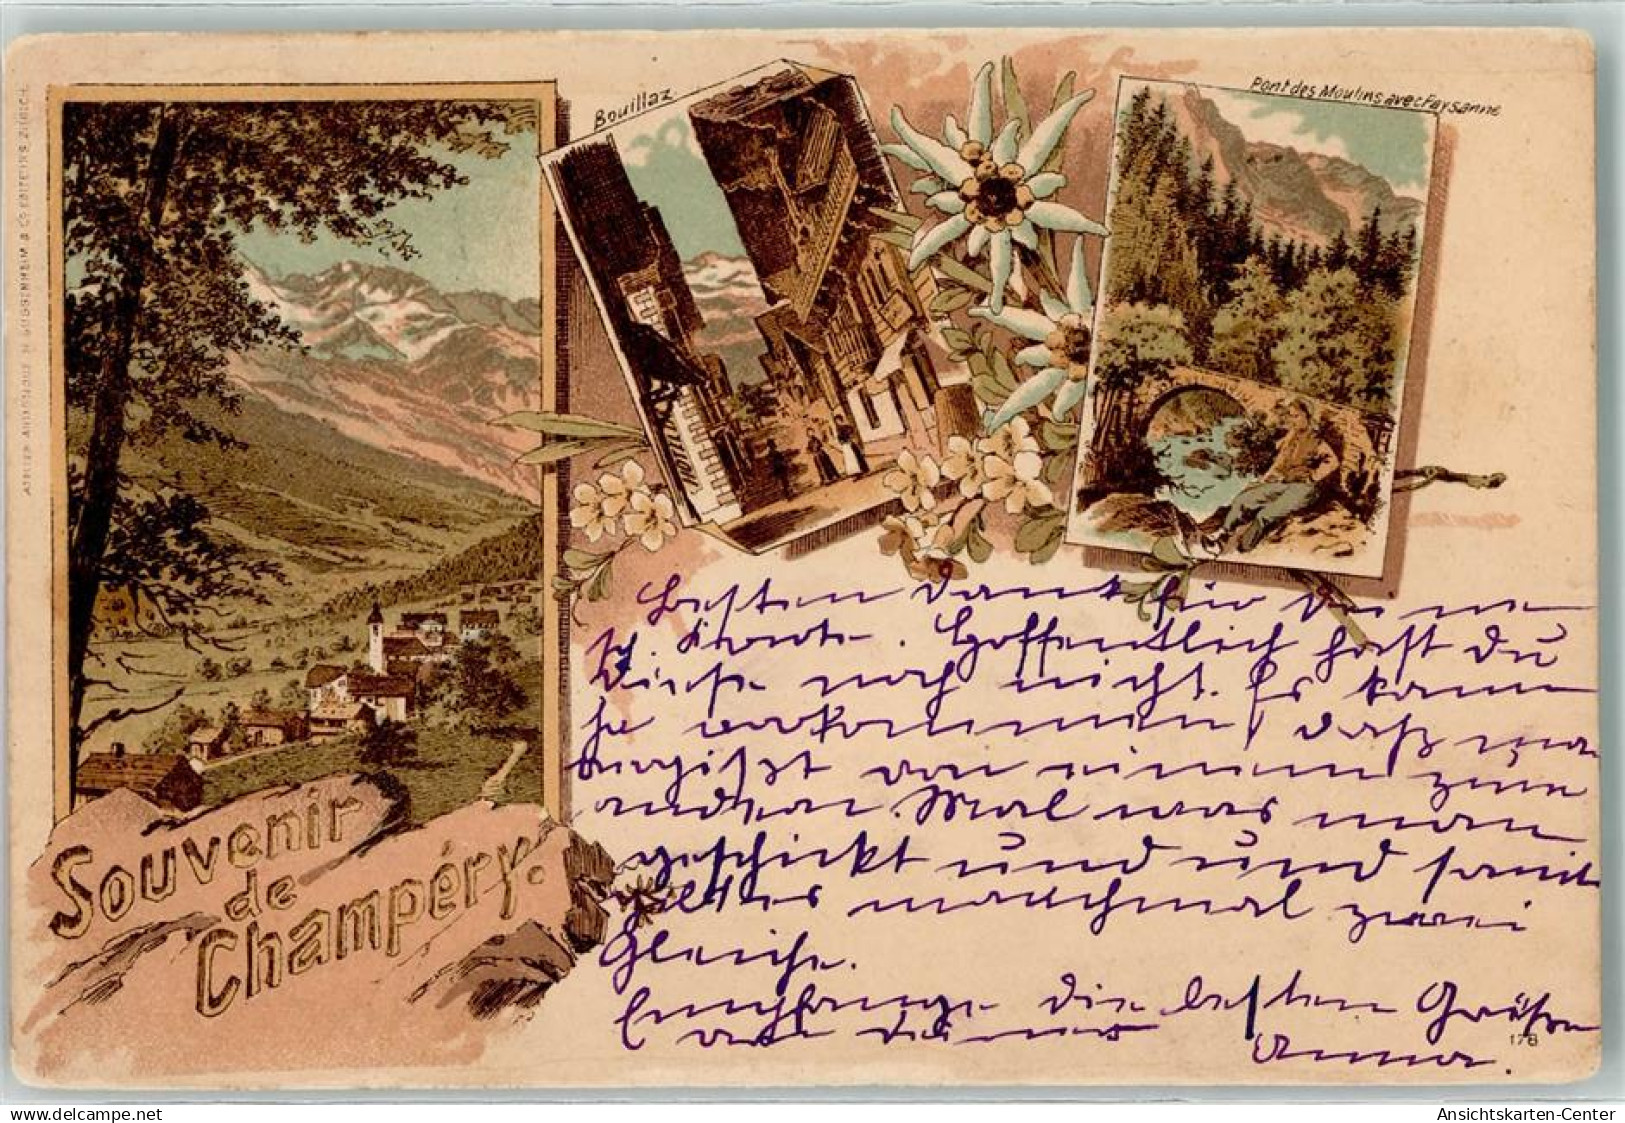 Bouillaz
Pont des Moulins avec Paysanne
ATELIER ARTISTIQUE H. GUGGENHEIM & Co EDITEURS, ZÜRICH.
Souvenir
de
Champéry.
Besten Dank für Deine
sch. Karte. Hoffentlich hast Du
diese noch nicht. Es kann
ja vorkommen, daß man
vergißt von einem zum
andern Mal was man
geschickt und und somit
gibt es manchmal zwei
Gleiche.
Empfange die besten Grüße
von deiner
Anna.
178
delcampe.net
Ansichtskarten-Center